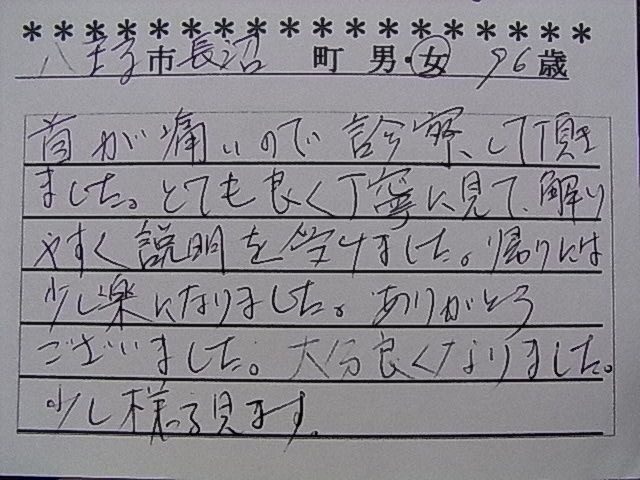 ＊＊＊＊＊＊＊＊＊＊＊＊＊＊＊＊＊＊
八王子市長沼 町 男・女 96歳
首が痛いので診察して頂き
ました。とても良く丁寧に見て、解り
やすく説明を受けました。帰りには
少し楽になりました。ありがとう
ございました。大分良くなりました。
少し様子見ます。